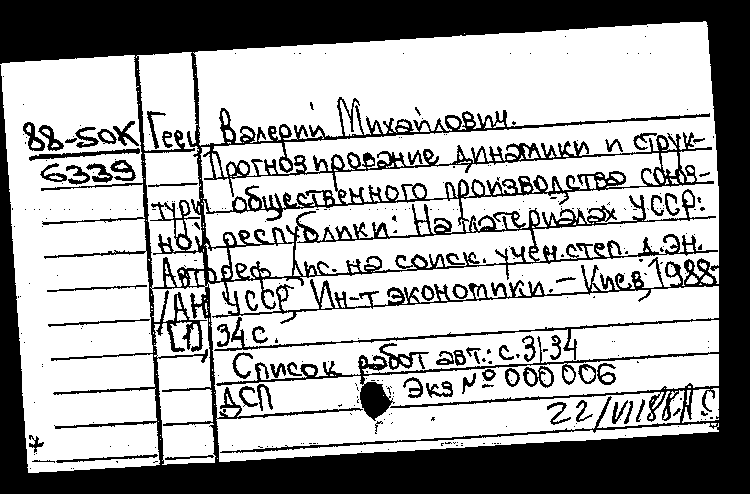 88-50К Геец Валерий Михайлович.
6339 Прогнозирование динамики и струк-
туры общественного производства союз-
ной республики: На материалах УССР:
Автореф. дис. на соиск. учен. степ. д. эн.
/АН УССР, Ин-т экономики. – Киев, 1988-
[1], 34 с.
Список работ авт.: с. 31-34
ДСП Экз № 000006
22/VI 88.